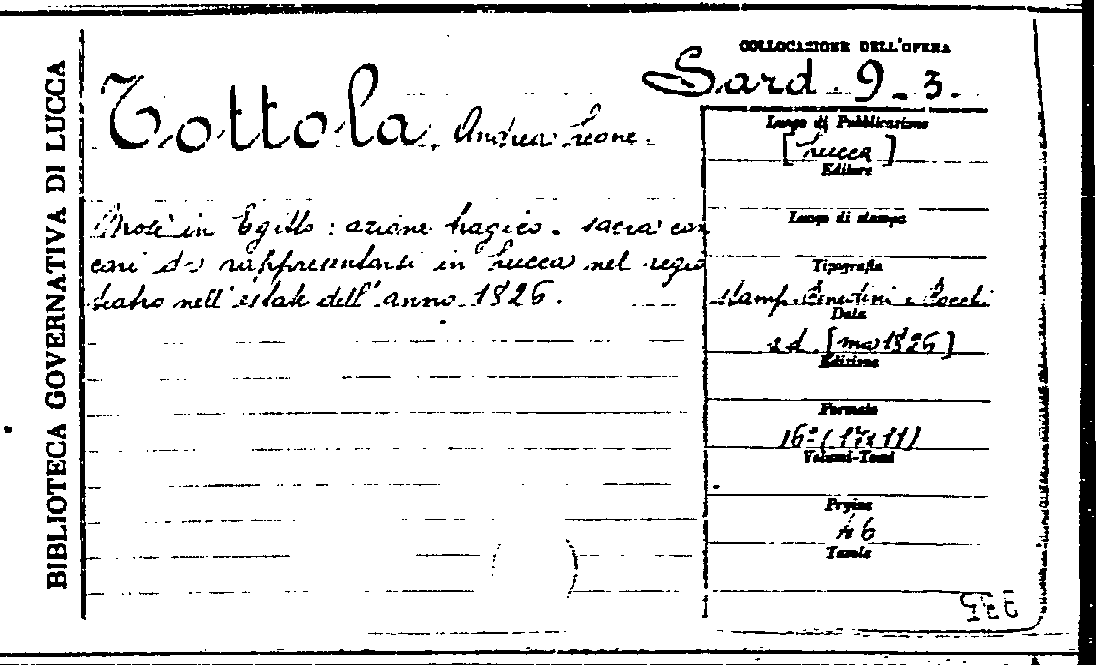 BIBLIOTECA GOVERNATIVA DI LUCCA
COLLOCAZIONE DELL'OPERA
Sard. 9. 3.
Tottola, Andrea Leone.
Mosè in Egitto: azione tragico-sacra con
cori da rappresentarsi in Lucca nel regio
teatro nell'estate dell'anno 1826.
Luogo di Pubblicazione
[Lucca]
Editore
Luogo di stampa
Tipografia
stamp. Benedini e Rocchi
Data
s.d. [ma 1826]
Edizione
Formato
16° (17x11)
Volumi-Tomi
Pagine
46
Tavole